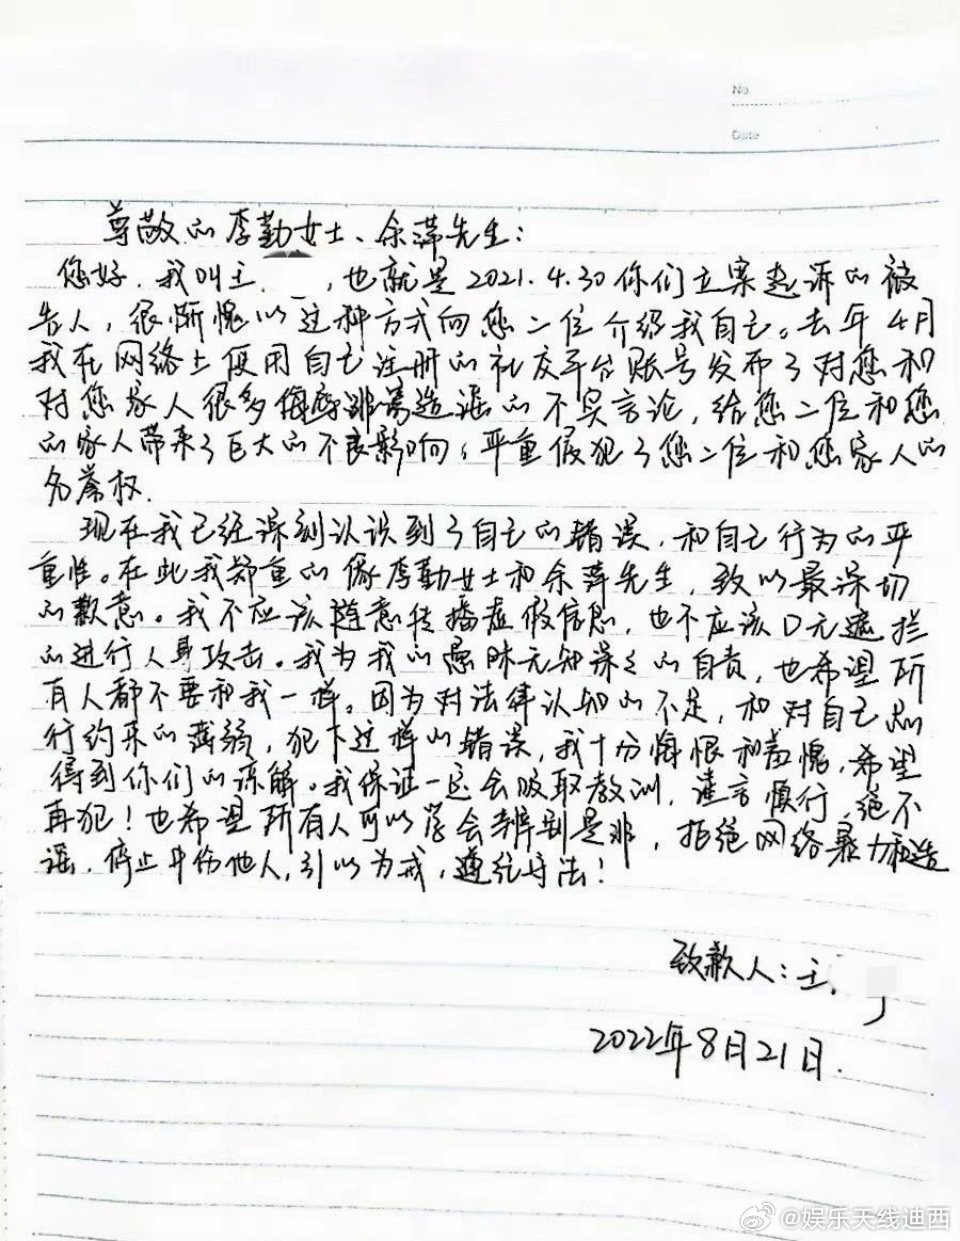 No
Date
尊敬的李勤女士、余萍先生:
您好.我叫王 ,也就是2021.4.30你们立案起诉的被
告人,很惭愧以这种方式向您二位介绍我自己。去年4月
我在网络上使用自己注册的社交平台账号发布了对您和
对您家人很多侮辱诽谤造谣的不实言论,给您二位和您
的家人带来了巨大的不良影响,严重侵犯了您二位和您家人的
名誉权.
现在我已经深刻认识到了自己的错误,和自己行为的严
重性。在此我郑重的像李勤女士和余萍先生,致以最深切
的歉意。我不应该随意传播虚假信息,也不应该口无遮拦
的进行人身攻击。我为我的愚昧无知深深的自责,也希望所
有人都不要和我一样。因为对法律认知的不足,和对自己的
行约束的薄弱,犯下这样的错误,我十分悔恨和羞愧,希望
得到你们的谅解。我保证一定会吸取教训,谨言慎行,绝不
再犯!也希望所有人可以学会辨别是非,拒绝网络暴力和造
谣,停止中伤他人,引以为戒,遵纪守法!
致歉人:王
2022年8月21日.
@娱乐天线迪西